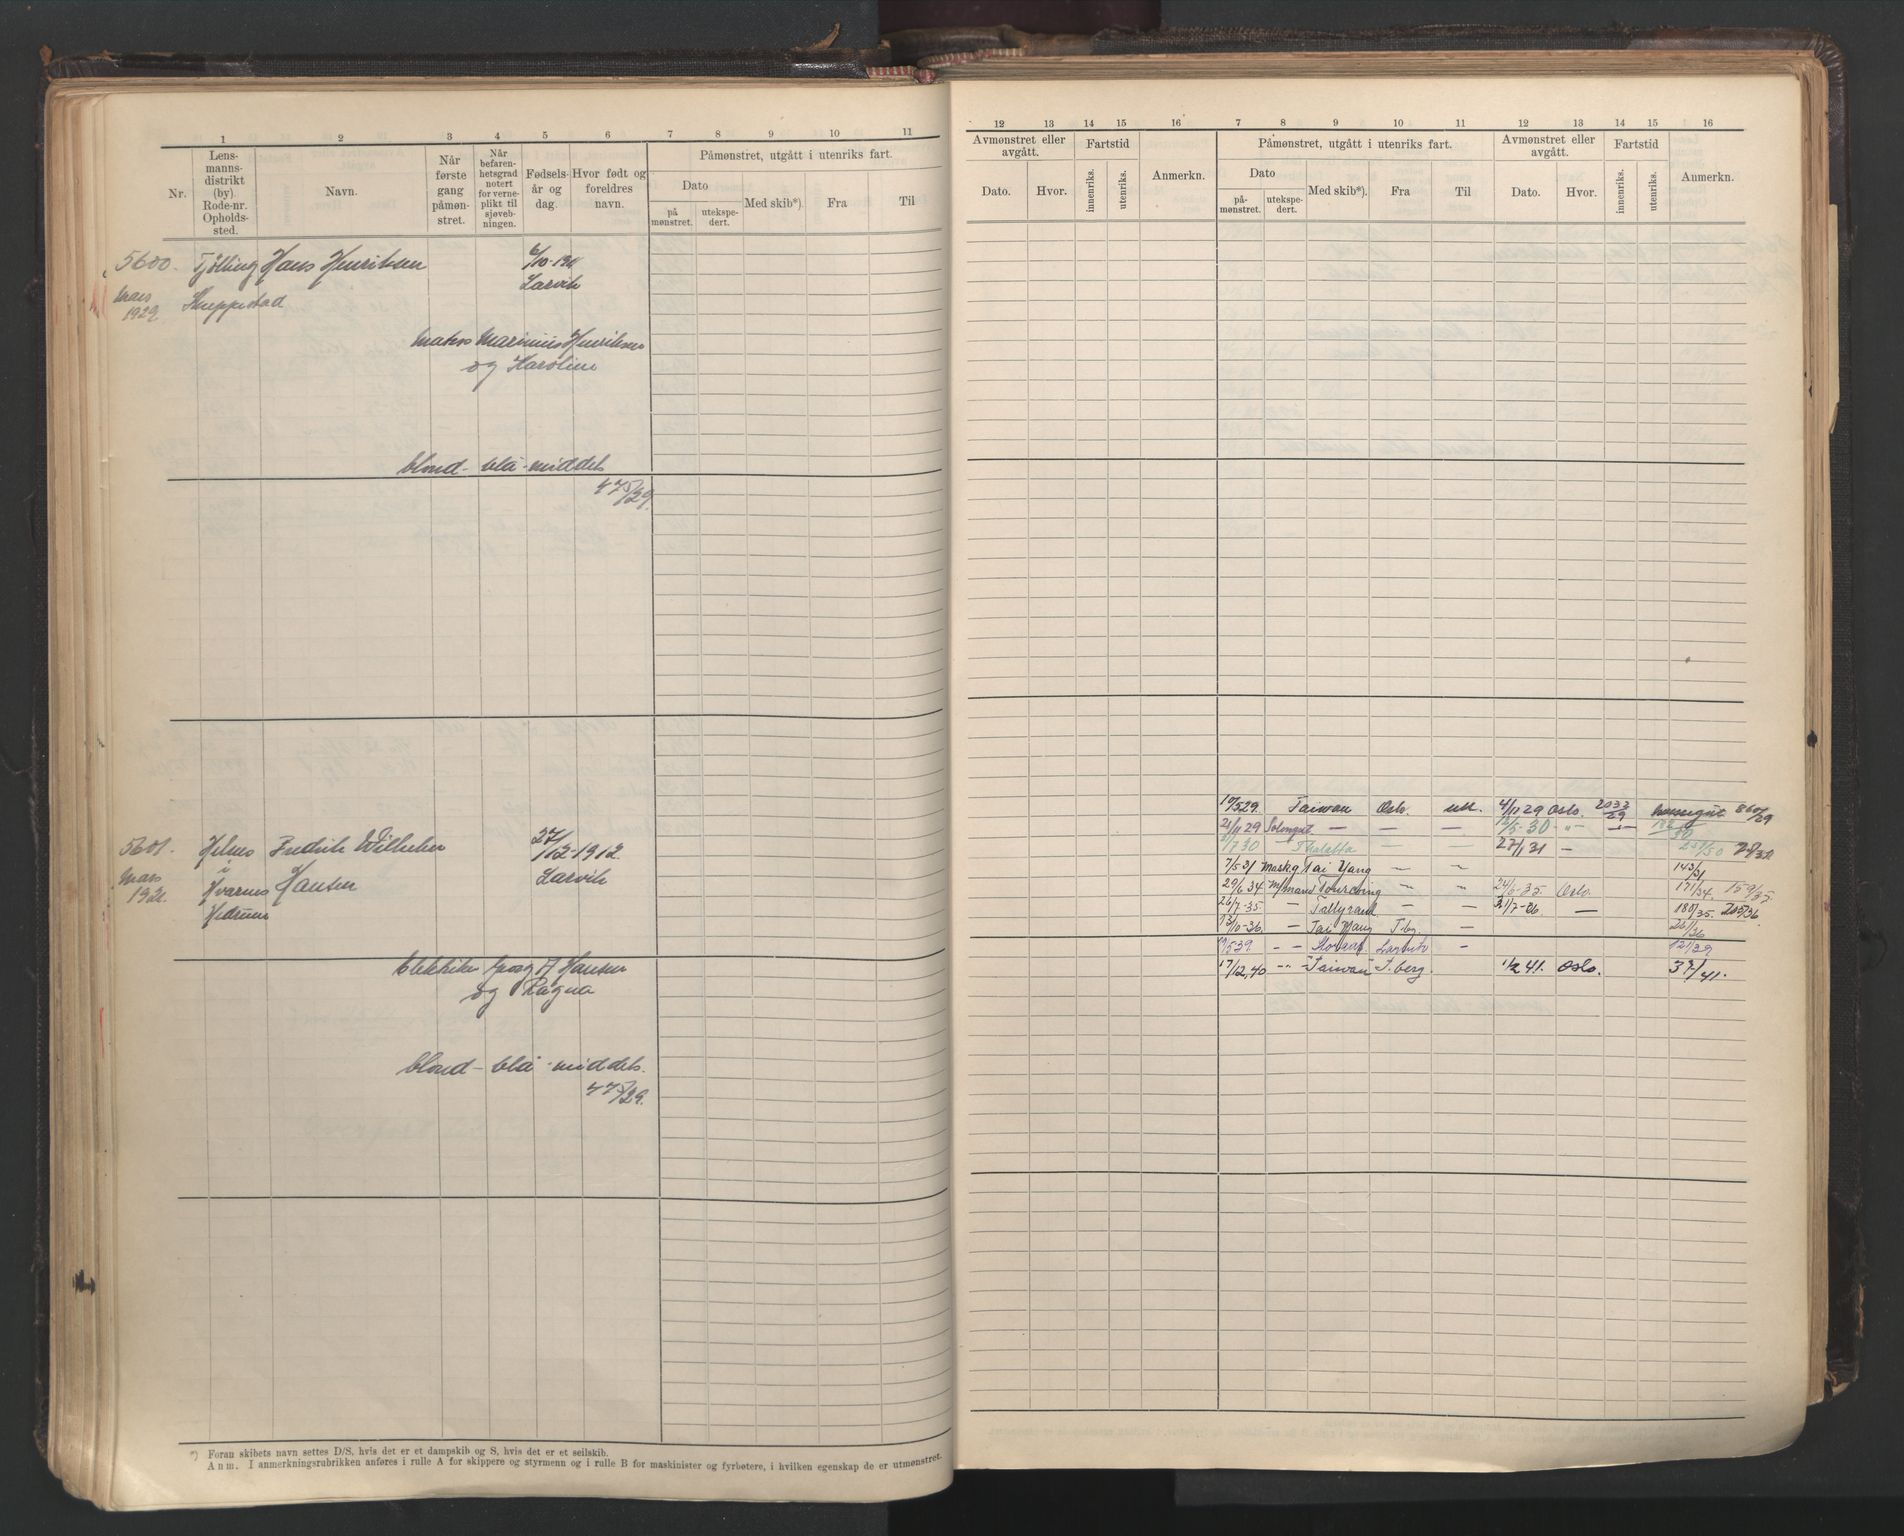 1 2 3 4 5 6 7 8 9 10 11
Nr.
Lens-
manns-
distrikt
(by).
Rode-nr.
Opholds-
sted.
Navn.
Når
første
gang
påmøn-
stret.
Når
befaren-
hetsgrad
notert
for verne-
plikt til
sjøveb-
ningen.
Fødsels-
år og
dag.
Hvor født og
foreldres
navn.
Påmønstret, utgått i utenriks fart.
Dato
på
mønstret.
utekspe-
dert.
Med skib*).
Fra
Til
5600. Tjølling Hans Henriksen 6/10-1911
mars Skeppestad Larvik
1929
Marinius Henriksen
og Karoline
blond - blå - middels
475/29.
5601. Helnes Fredrik Wilhelm 27/12-1912.
mars i Larvik
Kvarnes Hansen
Hedrum
Georg A Hansen
og Ragna
blond - blå - middels.
475/29.
*) Foran skibets navn settes D/S, hvis det er et dampskib og S, hvis det er et seilskib.
Anm. I anmerkningsrubrikken anføres i rulle A for skippere og styrmenn og i rulle B for maskinister og fyrbøtere, i hvilken egenskap de er utmønstret.
12 13 14 15 16 7 8 9 10 11 12 13 14 15 16
Avmønstret eller
avgått.
Fartstid
Dato.
Hvor.
innenriks.
utenriks.
Anmerkn.
Påmønstret, utgått i utenriks fart.
Dato
på-
mønstret.
utekspe-
dert.
Med skib*).
Fra
Til
Avmønstret eller
avgått.
Fartstid
Dato.
Hvor.
innenriks.
utenriks.
Anmerkn.
10/5 29. Taiwan Oslo. utl. 4/11 29 Oslo. 2033/29 860/29
21/11 29 — — — 13/5-30 -"-
7 30 Thalatta — — 27/1 31 —
7/5 31 Tai Yang — — 143/31
29/6 34 Touraine — — 24/6-35. Oslo. 171/34. 159/35.
26/7-35 — Talleyrand — — 21/7-36. — 180/35. 205/36.
13/10-36. — Tai Yang T.bg. — 261/36
39. — — Larvik — 121/39
17/12.40 -"- "Taiwan" T.berg. 1/2 41. Oslo.